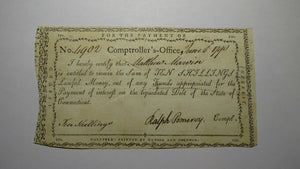 FOR THE PAYMENT OF
No. 4902 Comptroller's-Office, June 6 1791
I hereby certify that Matthew
entitled to receive the Sum of TEN SHILLINGS
Lawful Money, out of any Funds appropriated for the
Payment of interest on the liquidated Debt of the State of
Connecticut.
Ten Shillings Ralph Pomeroy Compt.
HARTFORD: PRINTED BY HUDSON AND GOODWIN.